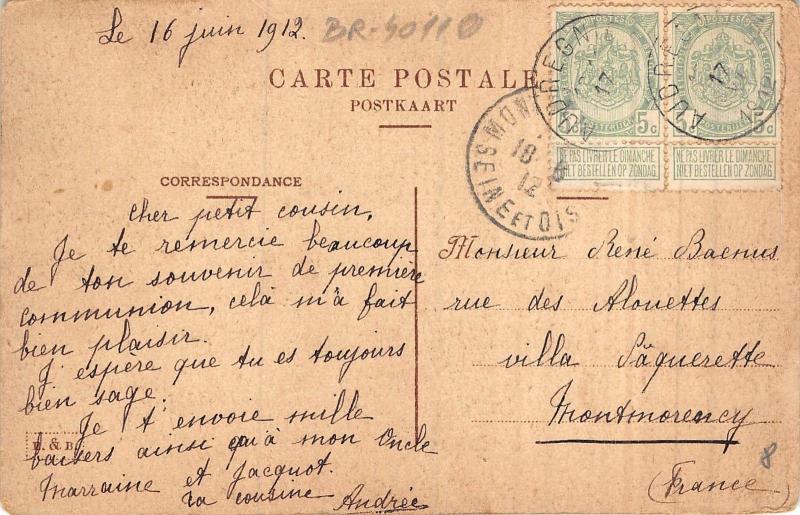 Le 16 juin 1912.
BR-40110
CARTE POSTALE
POSTKAART
POSTES
5c 5c
NE PAS LIVRER LE DIMANCHE
NIET BESTELLEN OP ZONDAG
NE PAS LIVRER LE DIMANCHE
NIET BESTELLEN OP ZONDAG
AUDREGNIES
17
1912
AUDREGN
17
1912
18-6
12
SEINE ET OISE
CORRESPONDANCE
Cher petit cousin,
Je te remercie beaucoup
de ton souvenir de première
communion, celà m'a fait
bien plaisir.
J'espère que tu es toujours
bien sage.
Je t'envoie mille
baisers ainsi qu'à mon Oncle
Marraine et Jacquot.
Ta cousine Andrée
& B.
Monsieur René Baenus
rue des Alouettes
villa Pâquerette
Montmorency
(France)
8